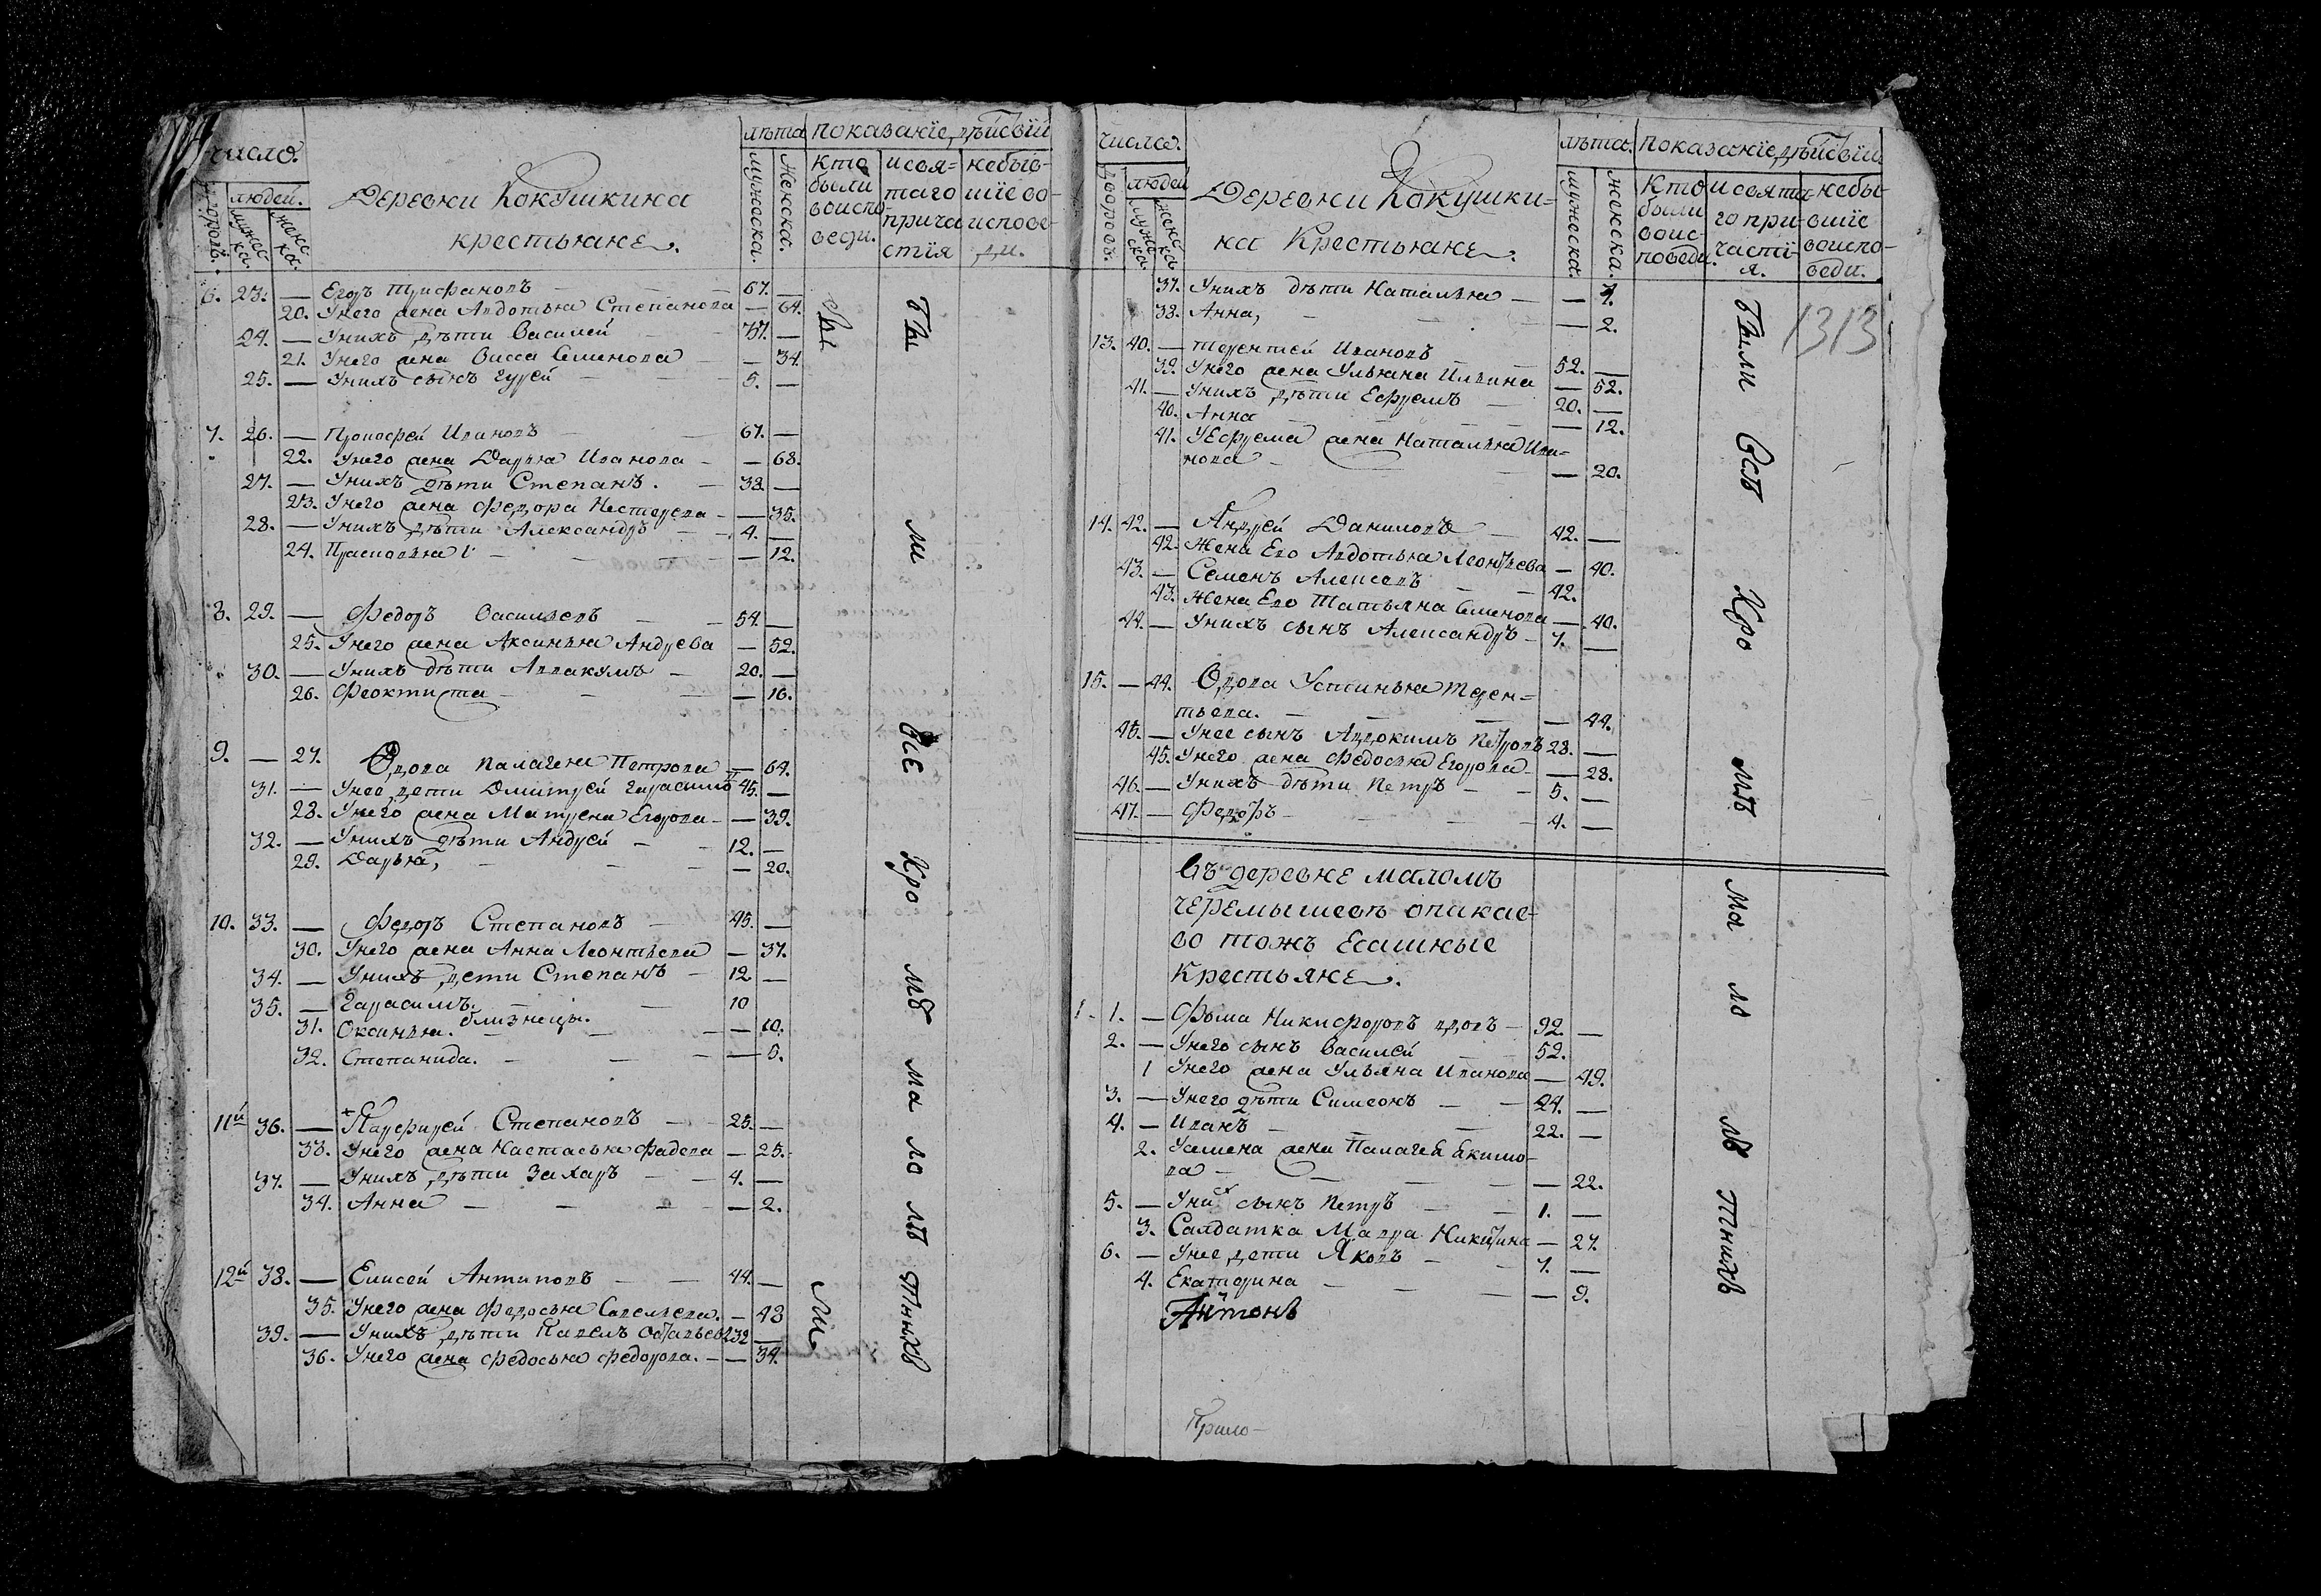 число. Деревни Кокушкина крестьяне. лѣта показанїе дѣйсвїй
дворовъ. людей. мужеска. женска. мужеска. женска. Кто были воиспо-веди. исвя-таго прича стїя небыв-шїе во испове-ди.
6. 23. — Егоръ Трифановъ — 67. —
20. Унего жена Авдотья Степанова — 64.
24. — Унихъ дѣти Василей 37. —
21. Унего жена Васса Семенова — 34.
25. — Унихъ сынъ Гурей — 5. —
7. 26. — Прокофей Ивановъ — 67. —
22. Унего жена Дарья Иванова — 68.
27. — Унихъ дѣти Степанъ. — 38. —
23. Унего жена Федора Нестерева — 35.
28. — Унихъ дѣти Александръ — 4. —
24. Прасковья — 12.
8. 29. — Федоръ Васильевъ — 54. —
25. Унего жена Аксинья Андреева — 52.
30. — Унихъ дѣти Аввакумъ — 20. —
26. Феоктиста — 16.
9. — 27. Вдова Палагея Петрова — 64.
31. — Унее дети Дмитрей Гарасимо 45. —
28. Унего жена Матрена Егорова — 39.
32. — Унихъ дѣти Андрей — 12. —
29. Дарья, — 20.
10. 33. — Федоръ Степановъ — 45. —
30. Унего жена Анна Леонтьева — 37.
34. — Унихъ дети Степанъ — 12 —
35. — Гарасимъ. близнецы. — 10
31. Оксинья. — 10.
32. Степанида. — 5.
11й 36. — Парфирей Степановъ — 25. —
33. Унего жена Настасья Фадева — 25.
37. — Унихъ дѣти Захаръ — 4. —
34. Анна — 2.
12й 38. — Елисей Антиповъ — 44. —
35. Унего жена Федосья Савельева. — 43
39. — Унихъ дѣти Павелъ 32 —
36. Унего жена Федосья Федорова. — 34.
Бы
ли
Бы
ли
все
Кро
мѣ
ма
ло
лѣ
тнихъ
числа. Деревни Кокушки-на Крестьяне. лѣта. показанїе дѣйсвїй
дворовъ. людей мужеска. женска. мужеска. женска. Кто были воис-поведи. и свята-го при-части-я. небы-вшїе воиспо-веди.
1313
37. Унихъ дѣти Наталья — 7.
38. Анна, — 2.
13. 40. — Терентей Ивановъ — 52. —
39. Унего жена Ульяна Ильина — 52.
41. — Унихъ дѣти Ефремъ — 20. —
40. Анна — 12.
41. У Ефрема жена Наталья Ива-
нова — 20.
14. 42. — Андрей Даниловъ — 42. —
42. Жена Его Авдотья Леонтьева — 40.
43. — Семенъ Алексевъ — 42.
43. Жена Его Татьяна Семенова — 40.
44. — Унихъ сынъ Александръ — 7. —
15. — 44. Вдова Устинья Терен-
тьева. — 44.
45. — Унее сынъ Авдокимъ Петровъ 28. —
45. Унего жена Федосья Егорова — 28.
46. — Унихъ дѣти Петръ — 5. —
47. — Федоръ — 4. —
Въ деревне маломъ
черемышевѣ опакае-
во тожъ Ясашные
Крестьяне.
1. 1. — Фома Никифоровъ вдовъ — 92. —
2. — Унего сынъ Василей 52.
1 Унего жена Ульяна Иванова — 49.
3. — Унего дѣти Симеонъ — 24. —
4. — Иванъ — 22. —
2. Усмена жена Палагея Екимо-
ва — 22.
5. — Унихъ сынъ Петръ — 1. —
3. Салдатка Мавра Никитина — 27.
6. — Унее дети Яковъ — 7. —
4. Екатерина — 9.
Антонъ
Были
Всѣ
Кро
мѣ
ма
ло
лѣ
тнихъ